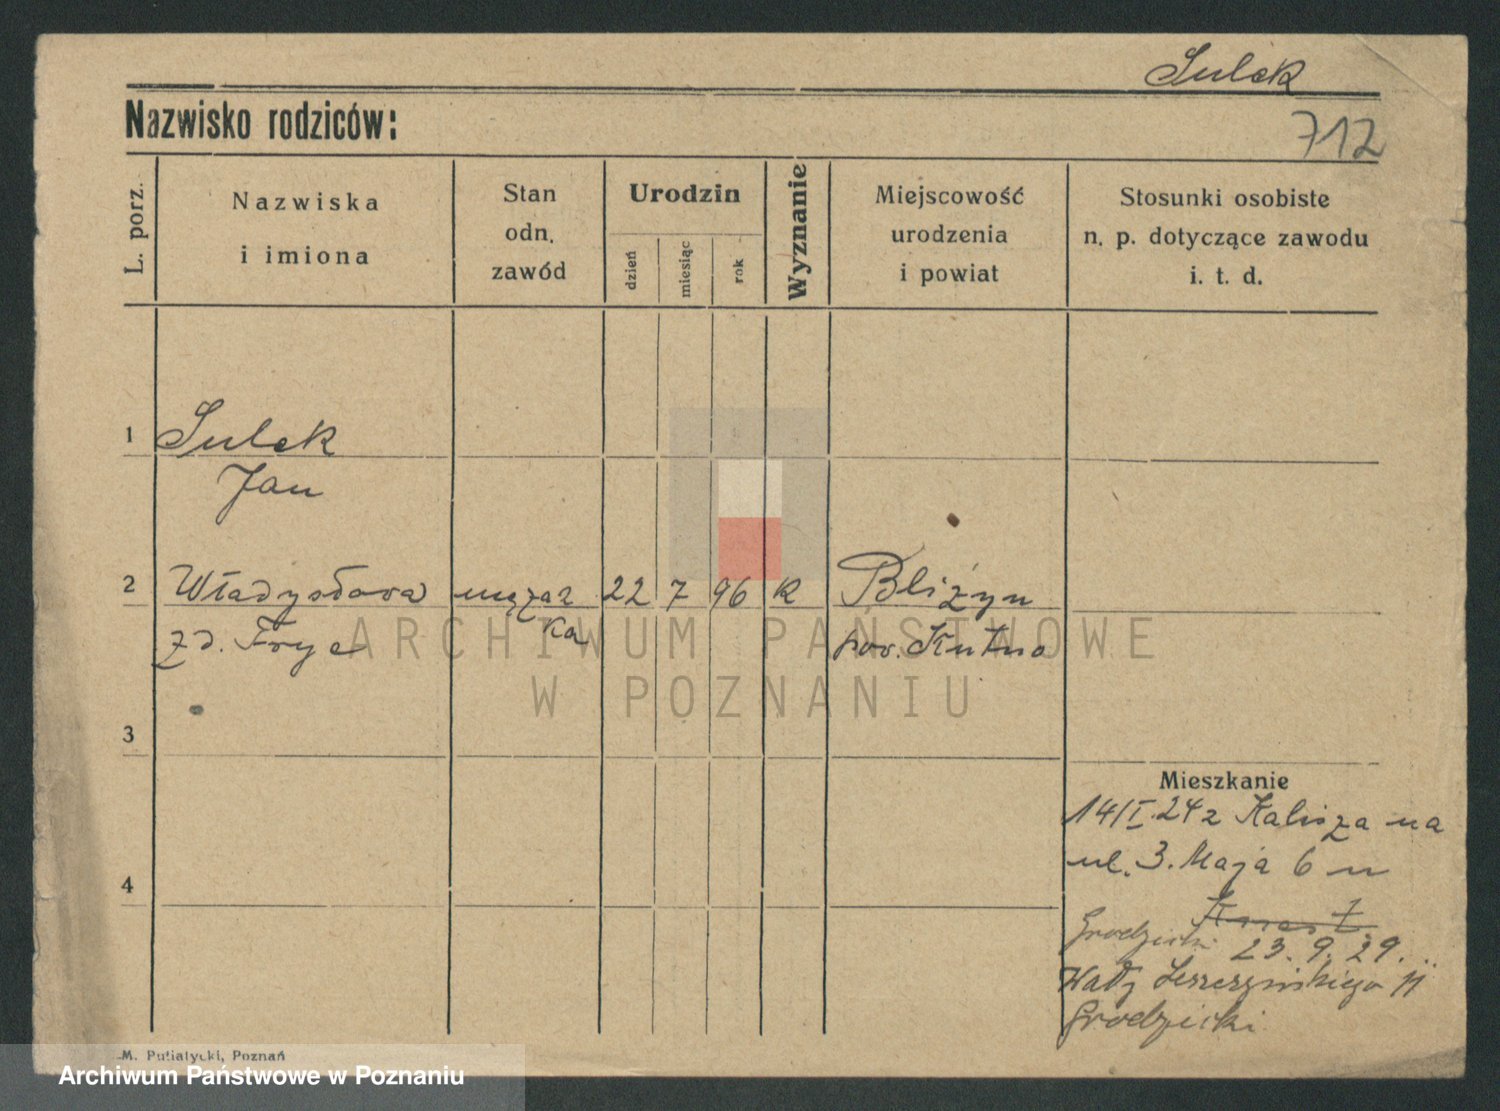 Sulek
Nazwisko rodziców:
712
L. porz.
Nazwiska
i imiona
Stan
odn.
zawód
Urodzin
dzień
miesiąc
rok
Wyznanie
Miejscowość
urodzenia
i powiat
Stosunki osobiste
n. p. dotyczące zawodu
i. t. d.
1 Sulek
Jan
2 Władysława mężat 22 7 96 k Bliżyn
ka
zd. Frye pow. Kutno
ARCHIWUM PAŃSTWOWE
W POZNANIU
3
Mieszkanie
14/I.24 z Kalisza na
ul. 3. Maja 6 u
4
Grodzicki 23. 9. 29.
Wały Leszczyńskiego 11
Grodzicki
M. Putiatycki, Poznań
Archiwum Państwowe w Poznaniu